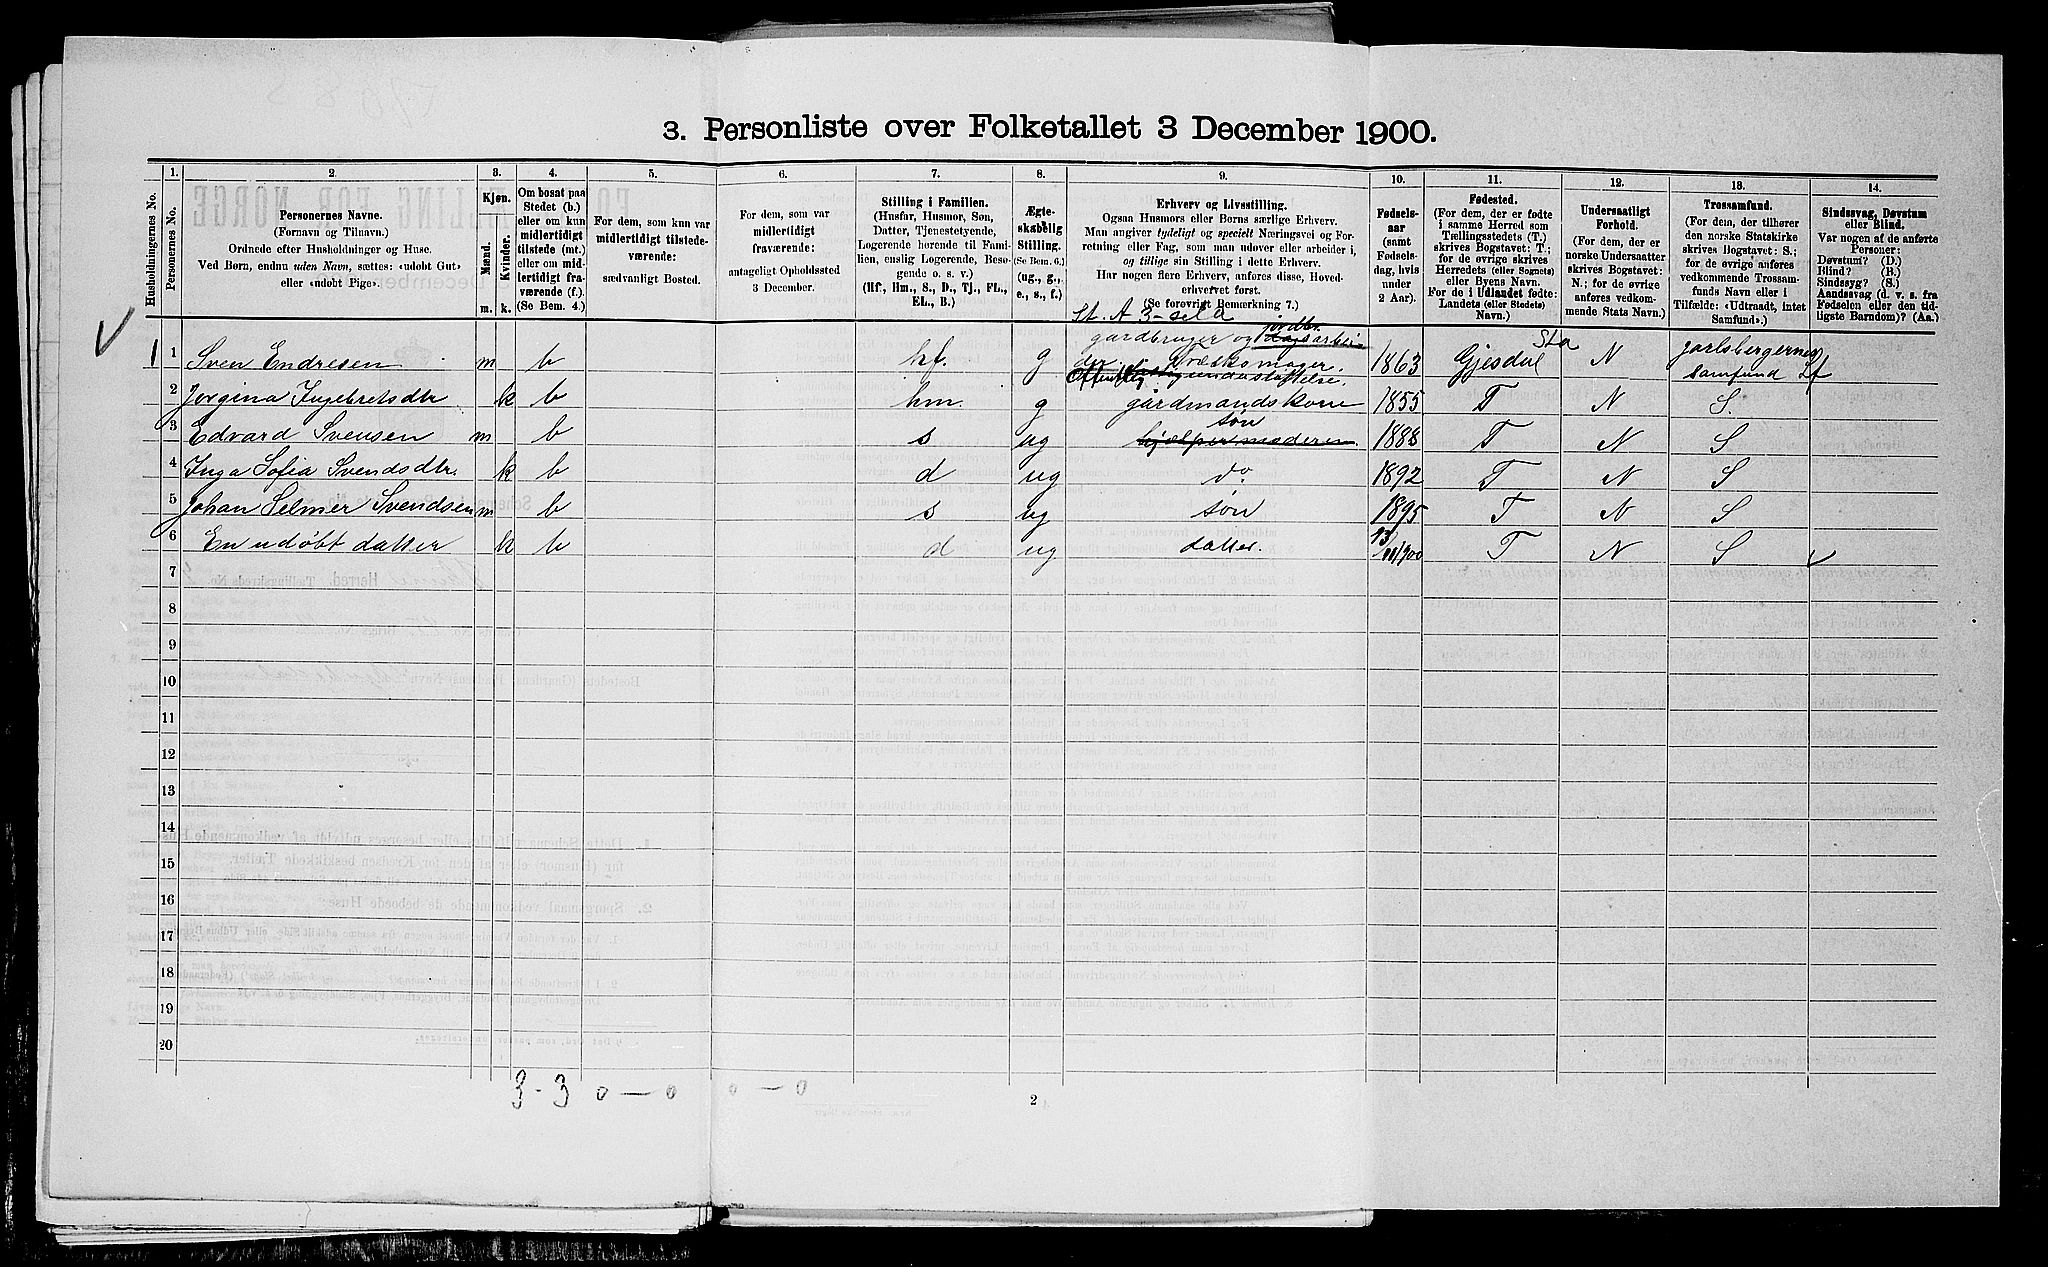 3. Personliste over Folketallet 3 December 1900.
Husholdningernes No.
1.
Personernes No.
2.
Personernes Navne.
(Fornavn og Tilnavn.)
Ordnede efter Husholdninger og Huse.
Ved Børn, endnu uden Navn, sættes: «udøbt Gut»
eller «udøbt Pige».
3.
Kjøn.
Mænd.
Kvinder.
m. k.
4.
Om bosat paa
Stedet (b.)
eller om kun
midlertidigt
tilstede (mt.)
eller om mid-
lertidigt fra-
værende (f.)
(Se Bem. 4.)
5.
For dem, som kun var
midlertidigt tilstede-
værende:
sædvanligt Bosted.
6.
For dem, som var
midlertidigt
fraværende:
antageligt Opholdssted
3 December.
7.
Stilling i Familien.
(Husfar, Husmor, Søn,
Datter, Tjenestetyende,
Logerende hørende til Fami-
lien, enslig Logerende, Besø-
gende o. s. v.)
(Hf., Hm., S., D., Tj., FL.,
EL., B.)
8.
Ægte-
skabelig
Stilling.
(Se Bem. 6.)
(ug., g.,
e., s., f.)
9.
Erhverv og Livsstilling.
Ogsaa Husmors eller Børns særlige Erhverv.
Man angiver tydeligt og specielt Næringsvei og For-
retning eller Fag, som man udøver eller arbeider i,
og tillige sin Stilling i dette Erhverv.
Har nogen flere Erhverv, anføres disse, Hoved-
erhvervet først.
(Se forøvrigt Bemærkning 7.)
10.
Fødsels-
aar
(samt
Fødsels-
dag, hvis
under
2 Aar).
11.
Fødested.
(For dem, der er fødte
i samme Herred som
Tællingsstedets (T.)
skrives Bogstavet: T;
for de øvrige skrives
Herredets (eller Sognets)
eller Byens Navn.
For de i Udlandet fødte:
Landets (eller Stedets)
Navn.)
12.
Undersaatligt
Forhold.
(For dem, der er
norske Undersaatter
skrives Bogstavet:
N.; for de øvrige
anføres vedkom-
mende Stats Navn.)
13.
Trossamfund.
(For dem, der tilhører
den norske Statskirke
skrives Bogstavet: S.;
for de øvrige anføres
vedkommende Trossam-
funds Navn eller i
Tilfælde: «Udtraadt, intet
Samfund».)
14.
Sindssvag, Døvstum
eller Blind.
Var nogen af de anførte
Personer:
Døvstum? (D.)
Blind? (B.)
Sindssyg? (S.)
Aandssvag (d. v. s. fra
Fødselen eller den tid-
ligste Barndom)? (Aa.)
St. A 3-sel a
jordbr.
1 1 Sven Endresen m b hf. g gardbruger og dagsarbei- der. Træskomager. 1863 Gjesdal Sta N jarlsbergernes samfund Lf
2 Jørgina Ingebretsdtr k b hm. g gardmandskone 1855 T N S.
3 Edvard Svensen m b s ug søn hjælper moderen. 1888 T N S
4 Inga Sofia Svendsdtr. k b d ug do 1892 T N S
5 Johan Selmer Svendsen m b s ug søn 1895 T N S
6 En udøbt datter k b d ug datter. 13/11 1900 T N S
7
8
9
10
11
12
13
14
15
16
17
18
19
20
3 - 3 0 — 0 0 — 0
2